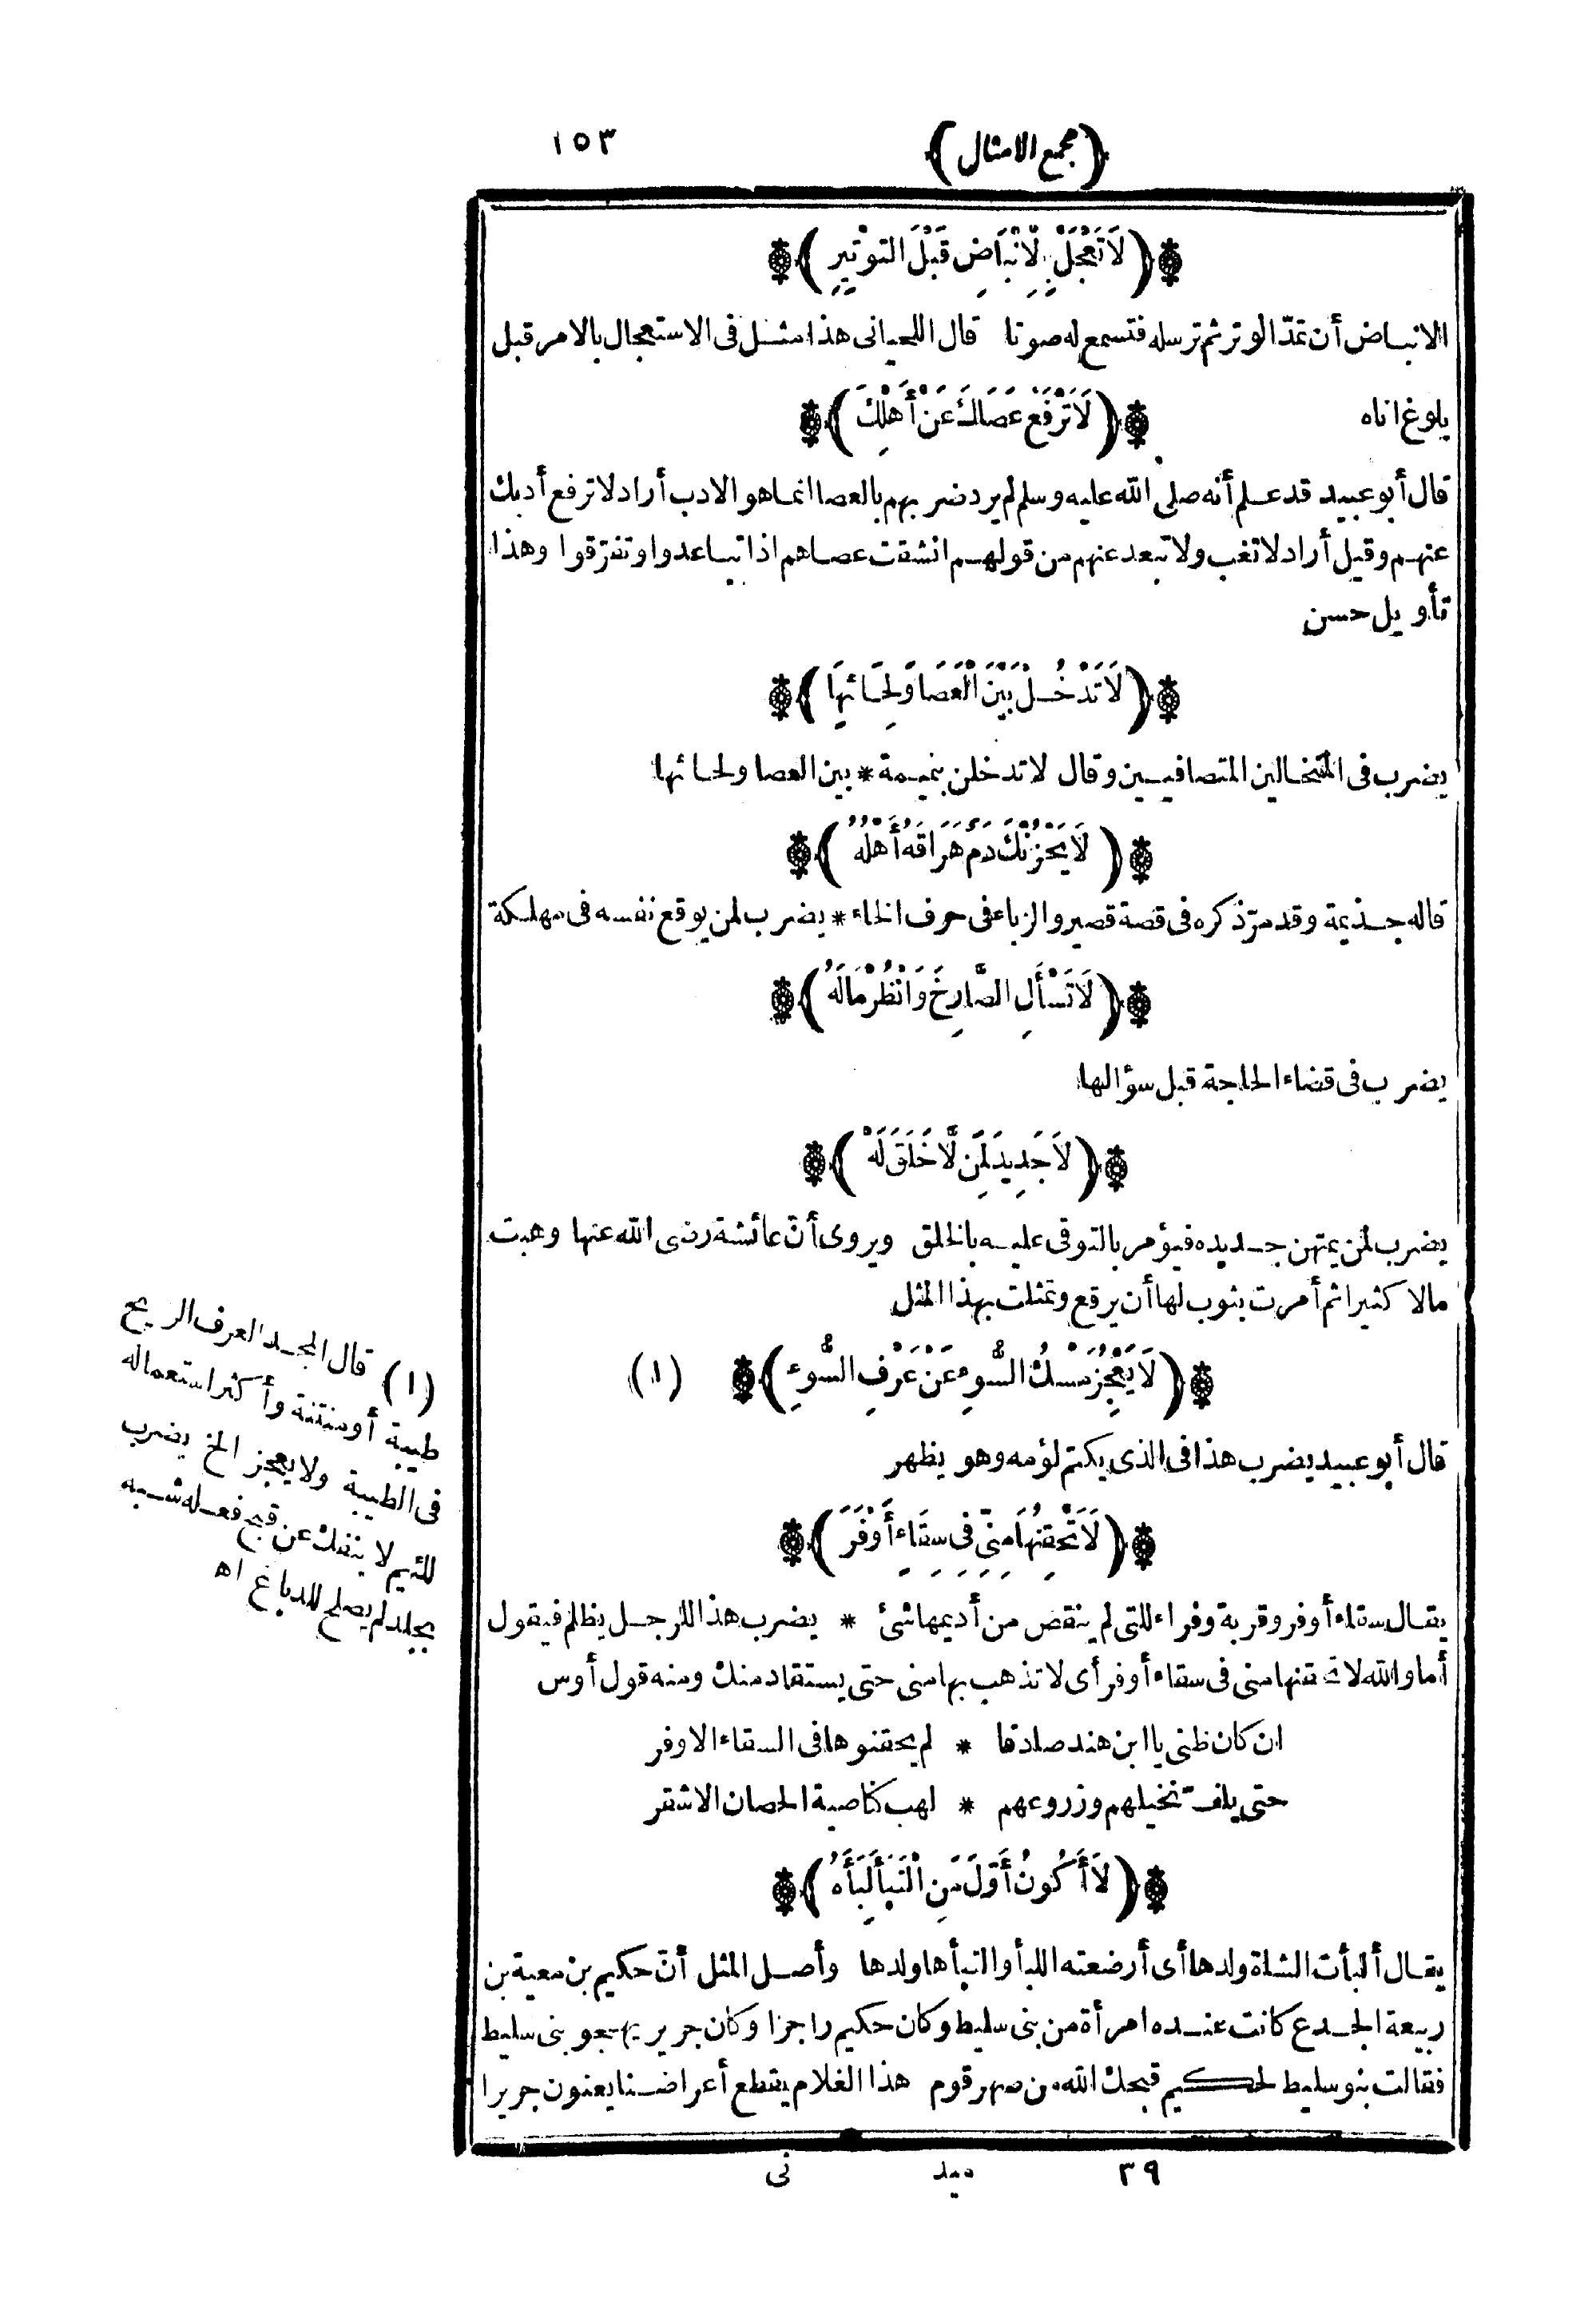 (مجمع الامثال) ١٥٣
(لَا تَعْجَلْ بِالْاِنْبَاضِ قَبْلَ التوْتِيرِ)
الانبـاض أن تمدّ الوتر ثم ترسله فتسمع له صوتا قال اللحيانى هذا مثـل فى الاستعجال بالامر قبل
بلوغ اناه (لَا تَرْفَعْ عَصَاكَ عَنْ أَهْلِكَ)
قال أبو عبيد قد علـم أنه صلى الله عليه وسلم لم يرد ضربهم بالعصا انمـا هو الادب أراد لا ترفع أدبك
عنهـم وقيل أراد لا تغب ولا تبعد عنهم من قولهـم انشقت عصـاهم اذا تبـاعدوا وتفرّقوا وهذا
تأويل حسن
(لَا تَدْخُـلْ بَيْنَ الْعَصَا وَلِحَـائِهَا)
يضرب فى المتخـالين المتصافيـين وقال لا تدخلن بنميـمة * بين العصا ولحـائها
(لَا يَحْزُنْكَ دَمٌ هَرَاقَهُ أَهْلُهُ)
قاله جـذيمة وقد مرّ ذكره فى قصة قصير والزباء فى حرف الخاء * يضرب لمن يوقع نفسه فى مهلـكة
(لَا تَسْأَلِ الصَّارِخَ وَانْظُرْ مَالَهُ)
يضرب فى قضاء الحاجة قبل سؤالها
(لَا جَدِيدَ لِمَن لَّا خَلَقَ لَهْ)
يضرب لمن يمتهن جـديده فيؤمر بالتوقى عليـه بالخلق ويروى أنّ عائشة رضى الله عنها وهبت
مالا كثيرا ثم أمرت بثوب لها أن يرقع وتمثلت بهذا المثل
(لَا يَعْجِزُ مَسْكُ السُّوءِ عَنْ عَرْفِ السُّوءِ) (١)
قال أبو عبيد يضرب هذا فى الذى يكتم لؤمه وهو يظهر
(لَا تَحْقِنُهَا مِنِّى فِى سِقَاءٍ أَوْفَرَ)
يقـال سقاء أوفر وقربة وفراء للتى لم ينقص من أديمها شئ * يضرب هذا للرجـل يظلم فيقول
أما والله لا تحقنها منى فى سقاء أوفر أى لا تذهب بها منى حتى يستقاد منك ومنه قول أوس
ان كان ظنى يا ابن هند صادقا * لم يحقنوها فى السقاء الاوفر
حتى يلف نخيلهم وزروعهم * لهب كناصية الحصان الاشقر
(لَا أَكُونُ أَوَّلَ مَنِ الْتَبَأَ لِبَأَهُ)
يقـال ألبأت الشاة ولدها أى أرضعته اللبأ والتبأها ولدها وأصـل المثل أنّ حكيم بن معية بن
ربيعة الجـدع كانت عنـده امرأة من بنى سليط وكان حكيم راجزا وكان جرير يهـجو بنى سليط
فقالت بنو سليط لحكيم قبحك الله من صهر قوم هذا الغلام يقطع أعراضـنا يعنون جريرا
٣٩ ميد نى
(١) قال المجـد العرف الريح
طيبة أو منتنة وأكثر استعماله
فى الطيبة ولا يعجز الخ يضرب
للئيم لا ينفك عن قبح فعـله شـبه
بجلد لم يصلح للدباغ اه